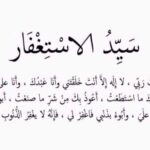 سَيِّدُ الاسْتِغْفَار
رَبِّي ، لا إِلَهَ إِلَّا أَنْتَ خَلَقْتَنِي وَأَنَا عَبْدُكَ ، وَأَنَا
مَا اسْتَطَعْتُ ، أَعُوذُ بِكَ مِنْ شَرِّ مَا صَنَعْتُ ،
عَلَيَّ ، وَأَبُوءُ بِذَنْبِي فَاغْفِرْ لِي ، فَإِنَّهُ لَا يَغْفِرُ الذُّنُوبَ